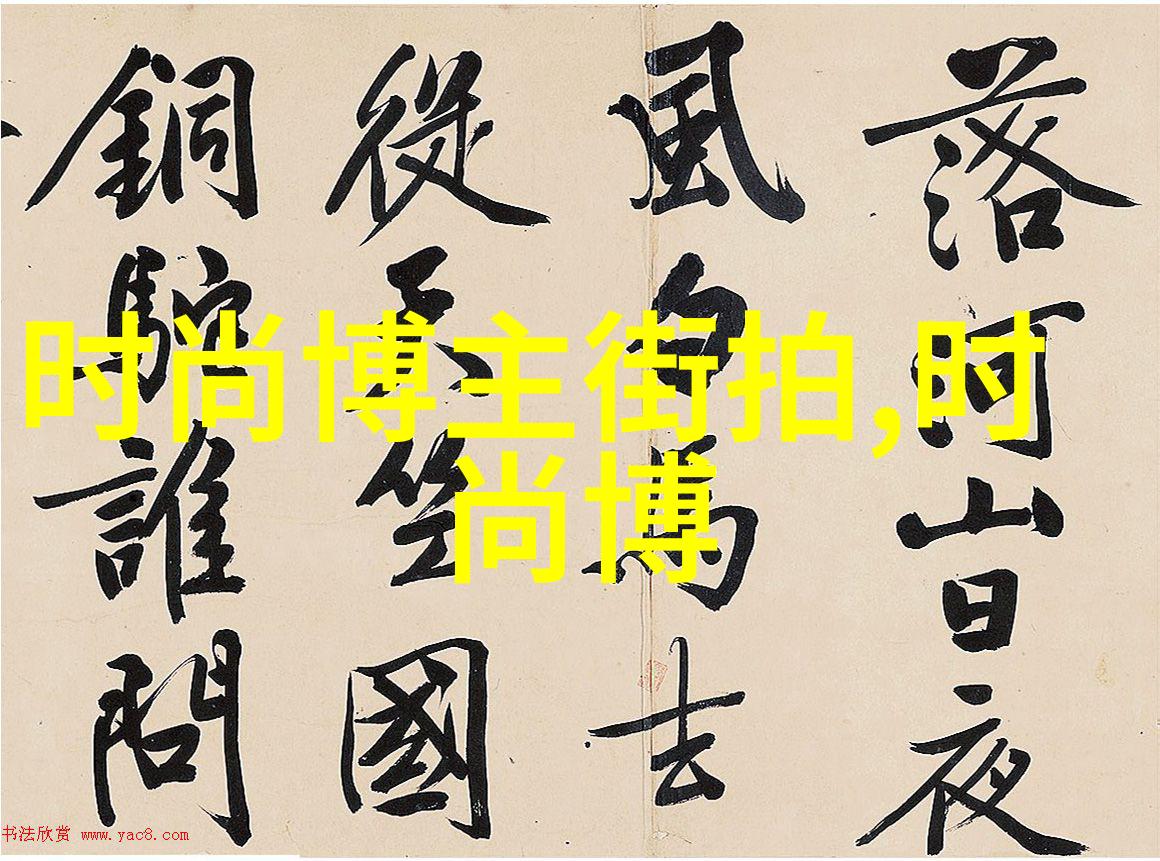 落河山日夜
風白馬去
從天竺國
銅駝誰問
时尚博主街拍,时
尚博
书法欣赏 www.yac8.com